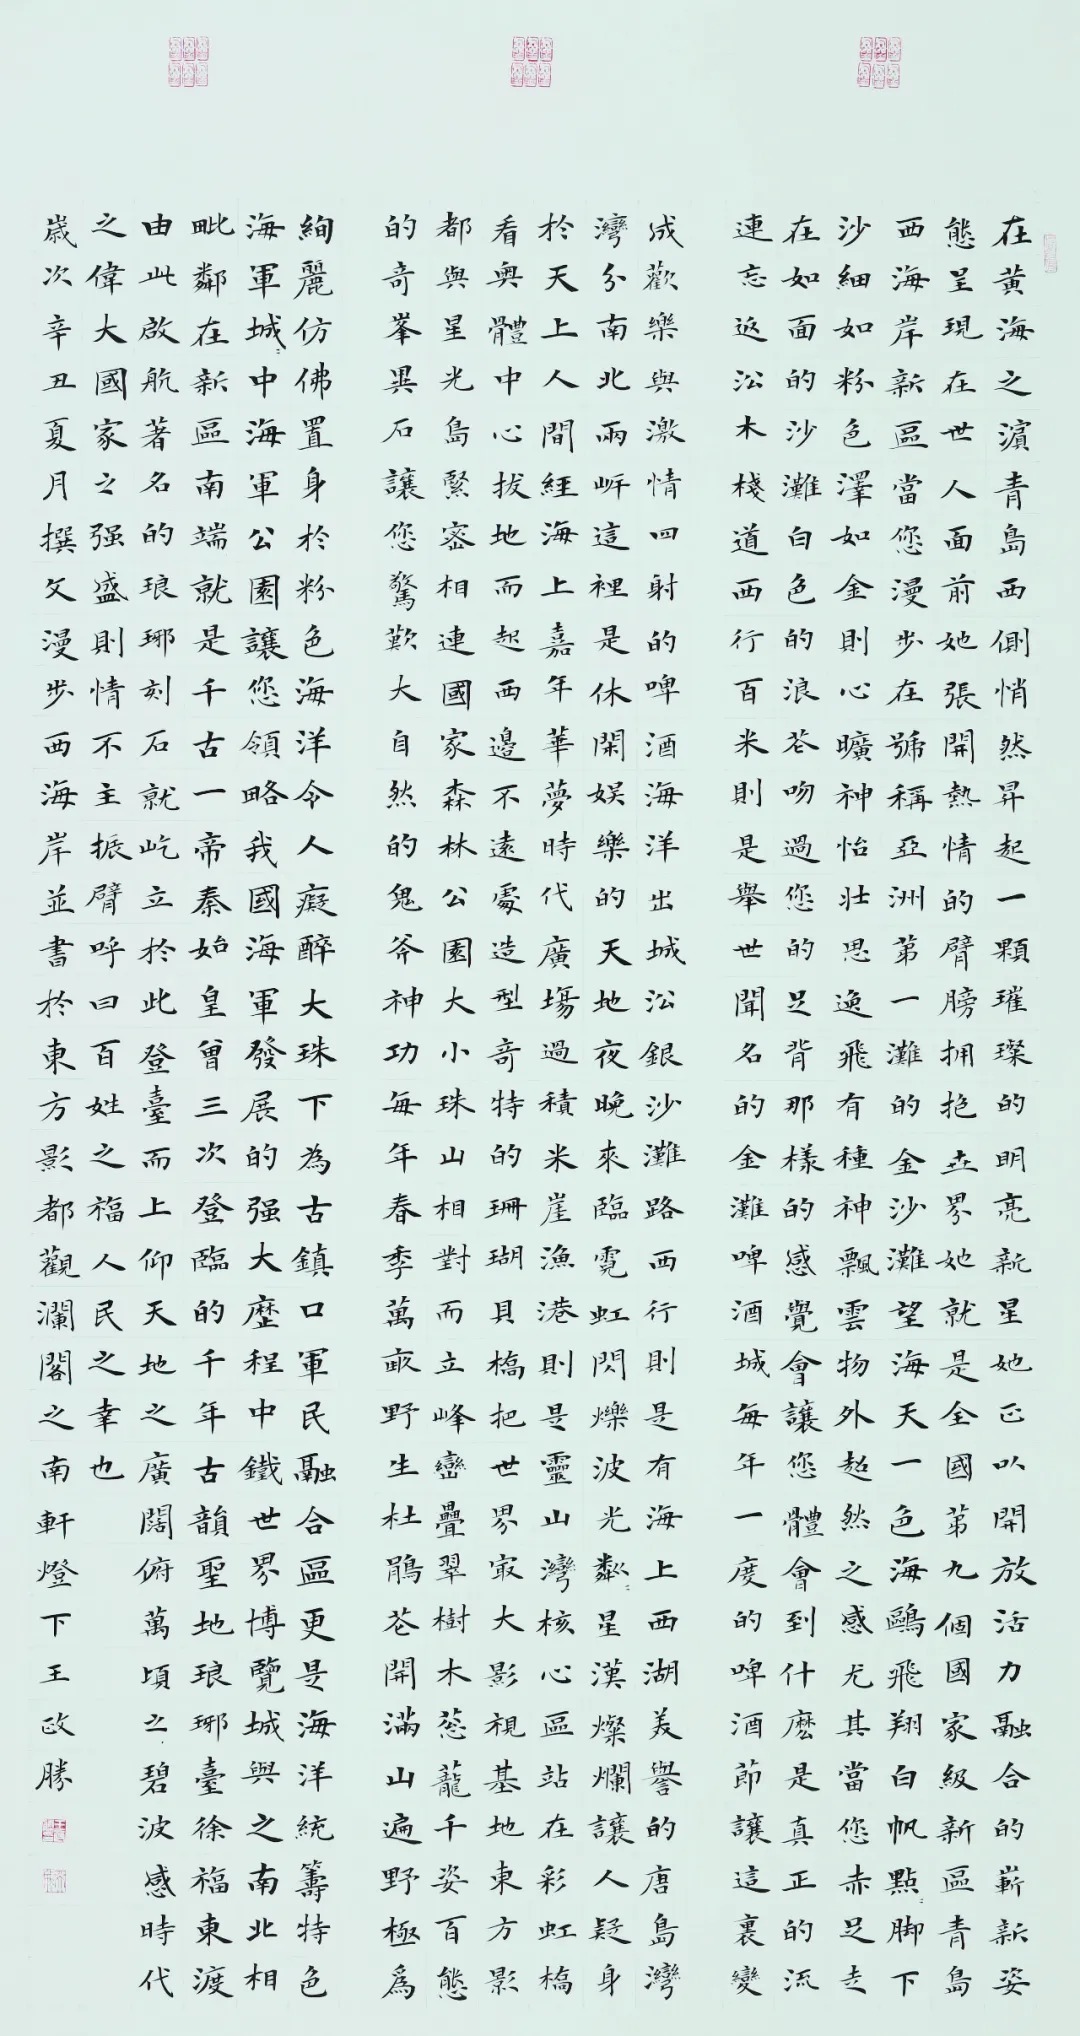 在黃海之濵青島西側悄然昇起一顆璀璨的明亮新星她正以開放活力融合的嶄新姿
態呈現在世人面前她張開熱情的臂膀拥抱世界她就是全國第九個國家級新區青島
西海岸新區當您漫步在號稱亞洲第一灘的金沙灘望海天一色海鷗飛翔白帆點點脚下
沙細如粉色澤如金則心曠神怡壯思逸飛有種神飄雲物外超然之感尤其當您赤足走
在如面的沙灘白色的浪花吻過您的足背那樣的感覺會讓您體會到什麽是真正的流
連忘返㳂木棧道西行百米則是舉世聞名的金灘啤酒城每年一度的啤酒節讓這裏變
成歡樂與激情四射的啤酒海洋出城㳂銀沙灘路西行則是有海上西湖美譽的唐島灣
灣分南北兩岸這裡是休閑娱樂的天地夜晚來臨霓虹閃爍波光粼粼星漢燦爛讓人疑身
於天上人間經海上嘉年華夢時代廣場過積米崖漁港則是靈山灣核心區站在彩虹橋
看奥體中心拔地而起西邊不遠處造型奇特的珊瑚貝橋把世界最大影視基地東方影
都與星光島緊密相連國家森林公園大小珠山相對而立峰巒疊翠樹木葱蘢千姿百態
的奇峯異石讓您驚歎大自然的鬼斧神功每年春季萬畝野生杜鵑花開滿山遍野極為
絢麗仿佛置身於粉色海洋令人癡醉大珠下為古鎮口軍民融合區更是海洋統籌特色
海軍城城中海軍公園讓您領略我國海軍發展的强大歷程中鐵世界博覽城與之南北相
毗鄰在新區南端就是千古一帝秦始皇曾三次登臨的千年古韻聖地琅琊臺徐福東渡
由此啟航著名的琅琊刻石就屹立於此登臺而上仰天地之廣闊俯萬頃之碧波感時代
之偉大國家之强盛則情不主振臂呼曰百姓之福人民之幸也
歲次辛丑夏月撰文漫步西海岸並書於東方影都觀瀾閣之南軒燈下王政勝